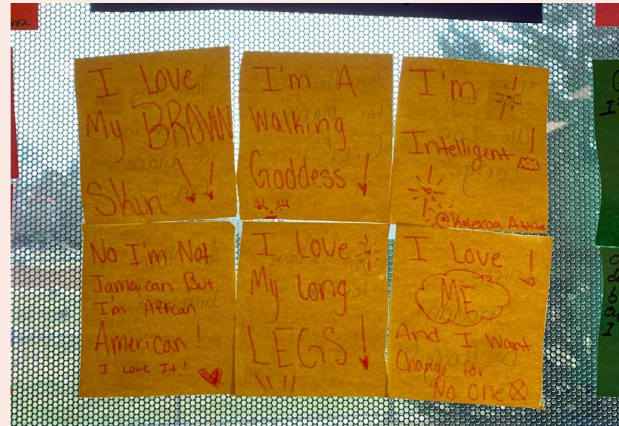 I Love
My BROWN
Skin !!
I'm A
Walking
Goddess !
I'm
Intelligent !
No I'm Not
Jamaican But
I'm African
American !
I Love It !
I Love
My long
LEGS !
I Love !
ME
And I Want
Change for
No One